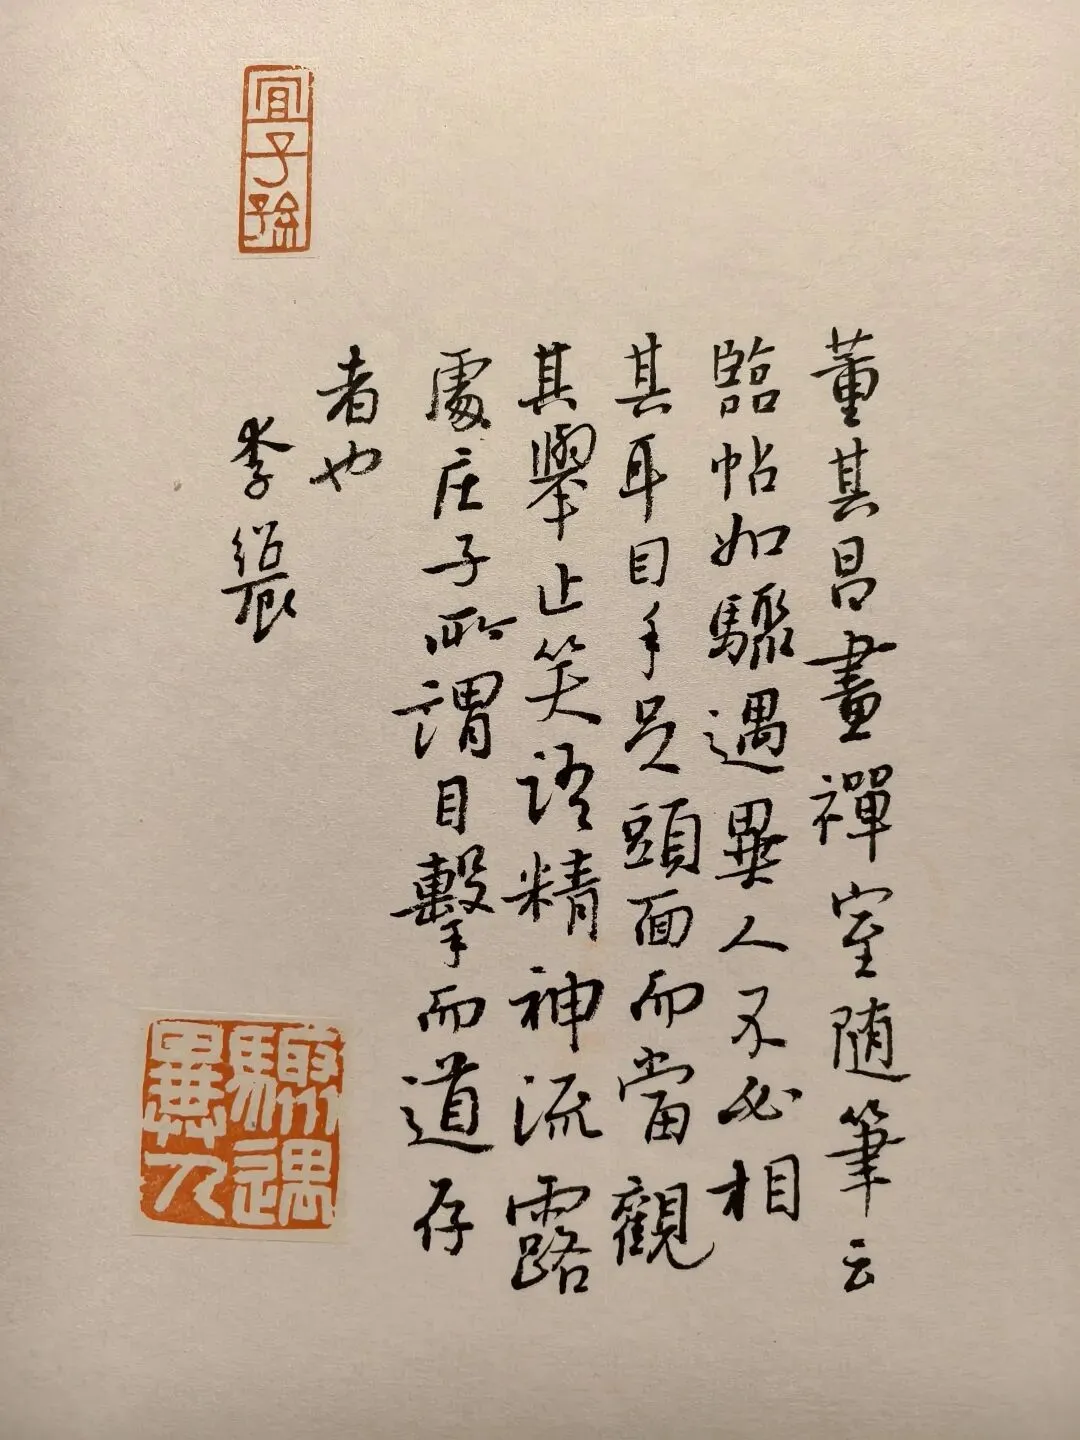 董其昌畫禪室随筆云
臨帖如驟遇異人不必相
其耳目手足頭面而當觀
其舉止笑語精神流露
處庄子所謂目擊而道存
者也
李
宜子孫
驟遇
異人